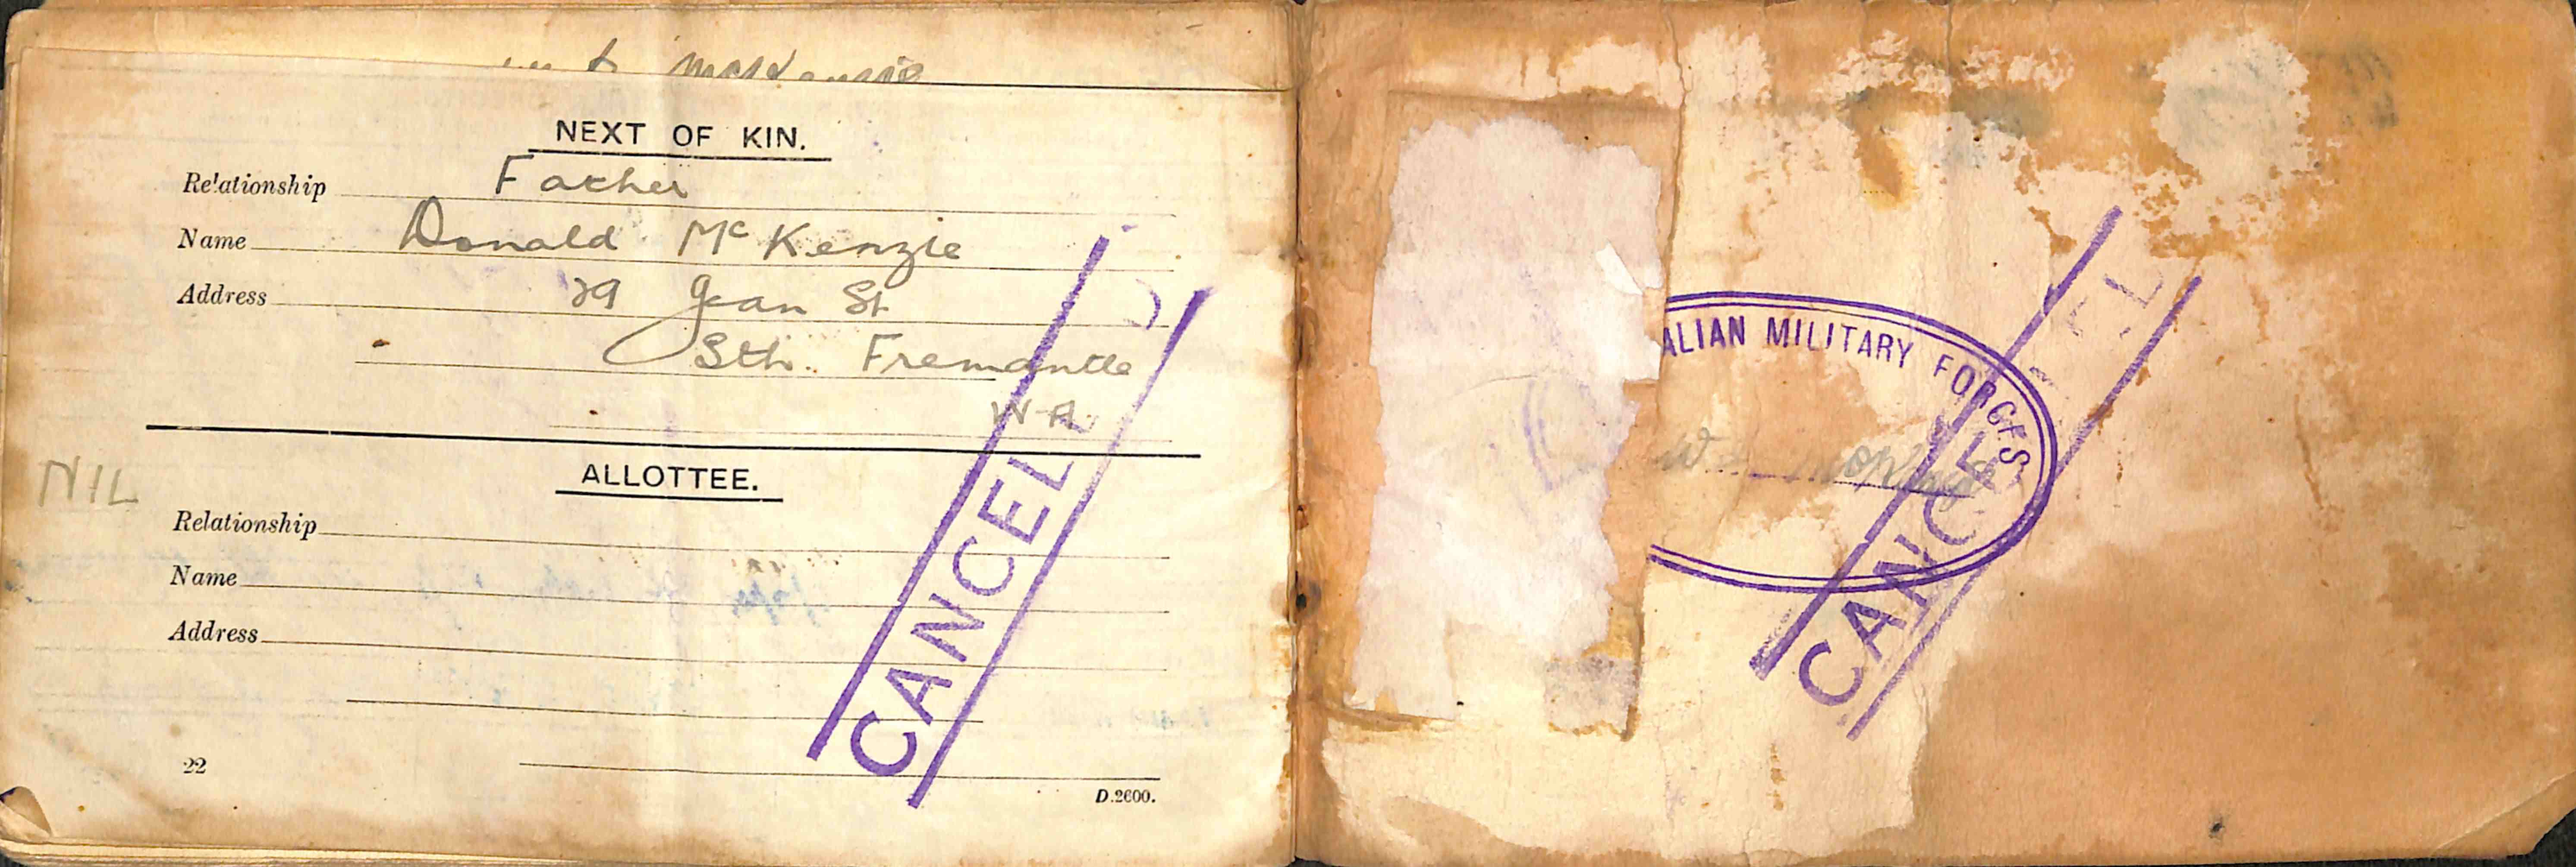 McKenzie
NEXT OF KIN.
Relationship Father
Name Donald McKenzie
Address 29 Jean St
Sth. Fremantle
W A
NIL
ALLOTTEE.
Relationship
Name
Address
22
D.2600.
CANCELL
ALIAN MILITARY FORCES
CANCEL